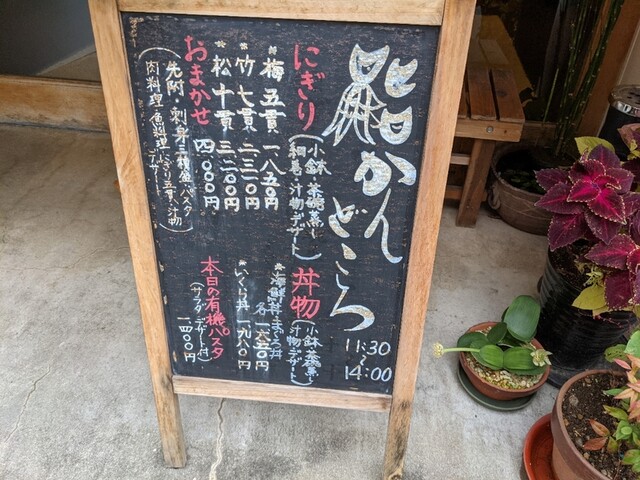 鮨かんどころ
11:30
〜
14:00
にぎり
(小鉢 茶碗蒸し
桐島 汁物 デザート)
*梅五貫 一八五〇円
*竹七貫 二三一〇円
*松十貫 三二〇〇円
おまかせ 四〇〇〇円
(先附・刺身 パスタ
肉料理 魚料理 にぎり五貫 汁物
デザート)
丼物
(小鉢 茶碗蒸し
汁物 デザート)
*海鮮丼
各 一六五〇円
*いくら丼 一九八〇円
本日の有機パスタ
(サラダ デザート付)
一四〇〇円